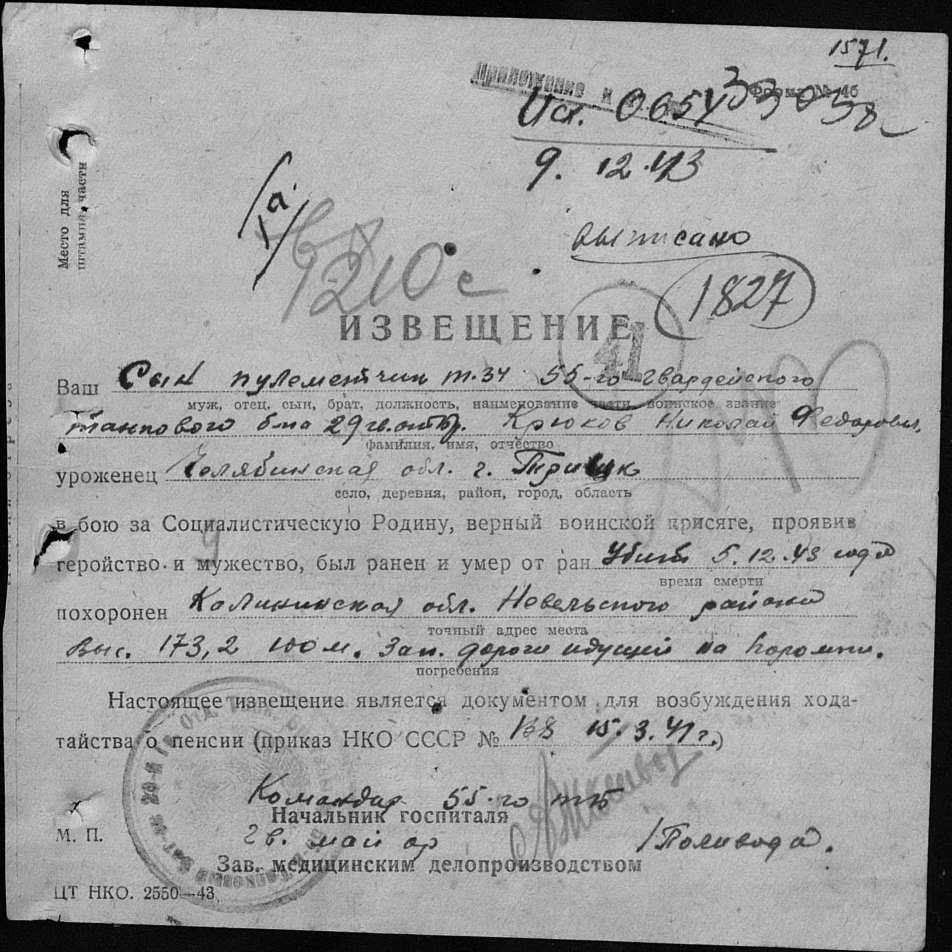 1571.
Приложение к
Форма № 16
Исх. 0654
33038с
9. 12.43
Место для
штампа части
выписано
1827
1210с
41
ИЗВЕЩЕНИЕ
Ваш Сын пулеметчик т.34 55-го Гвардейского
муж, отец, сын, брат, должность, наименование части, воинское звание
танкового б-на 29 гв. Крюков Николай Федорович,
фамилия, имя, отчество
уроженец Челябинская обл. г. Троицк
село, деревня, район, город, область
в бою за Социалистическую Родину, верный воинской присяге, проявив
геройство и мужество, был ранен и умер от ран Убит 5.12.43 года
время смерти
похоронен Калининская обл. Невельского района
точный адрес места
выс. 173,2 100 м. Зап. дороги идущей на
погребения
Настоящее извещение является документом для возбуждения хода-
тайства о пенсии (приказ НКО СССР № 15.3.41 г.)
Командир 55-го тб
Начальник госпиталя
М. П.
Гв. майор /Поливода.
Зав. медицинским делопроизводством
ЦТ НКО. 2550—43